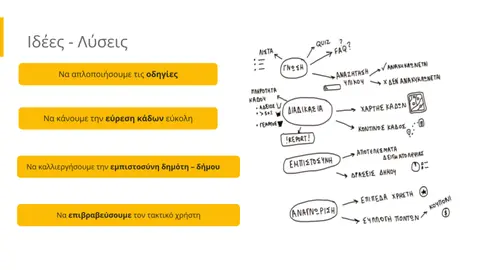 Ιδέες - Λύσεις
Να απλοποιήσουμε τις οδηγίες
Να κάνουμε την εύρεση κάδων εύκολη
Να καλλιεργήσουμε την εμπιστοσύνη δημότη – δήμου
Να επιβραβεύσουμε τον τακτικό χρήστη
ΛΙΣΤΑ
QUIZ
?
FAQ?
ΓΝΩΣΗ
ΑΝΑΖΗΤΗΣΗ
ΥΛΙΚΟΥ
✓ ΑΝΑΚΥΚΛΩΝΕΤΑΙ
X ΔΕΝ ΑΝΑΚΥΚΛΩΝΕΤΑΙ
ΠΛΗΡΟΤΗΤΑ
ΚΑΔΟΥ
• ΑΔΕΙΟΣ
• ΓΕΜΑΤΟΣ
ΔΙΑΔΙΚΑΣΙΑ
!REPORT!
ΧΑΡΤΗΣ ΚΑΔΩΝ
ΚΟΝΤΙΝΟΣ ΚΑΔΟΣ
ΕΜΠΙΣΤΟΣΥΝΗ
ΑΠΟΤΕΛΕΣΜΑΤΑ
ΔΡΑΣΕΙΣ ΔΗΜΟΥ
ΑΝΑΓΝΩΡΙΣΗ
ΕΠΙΠΕΔΑ ΧΡΗΣΤΗ
ΣΥΛΛΟΓΗ ΠΟΝΤΩΝ
ΚΟΥΠΟΝΙ